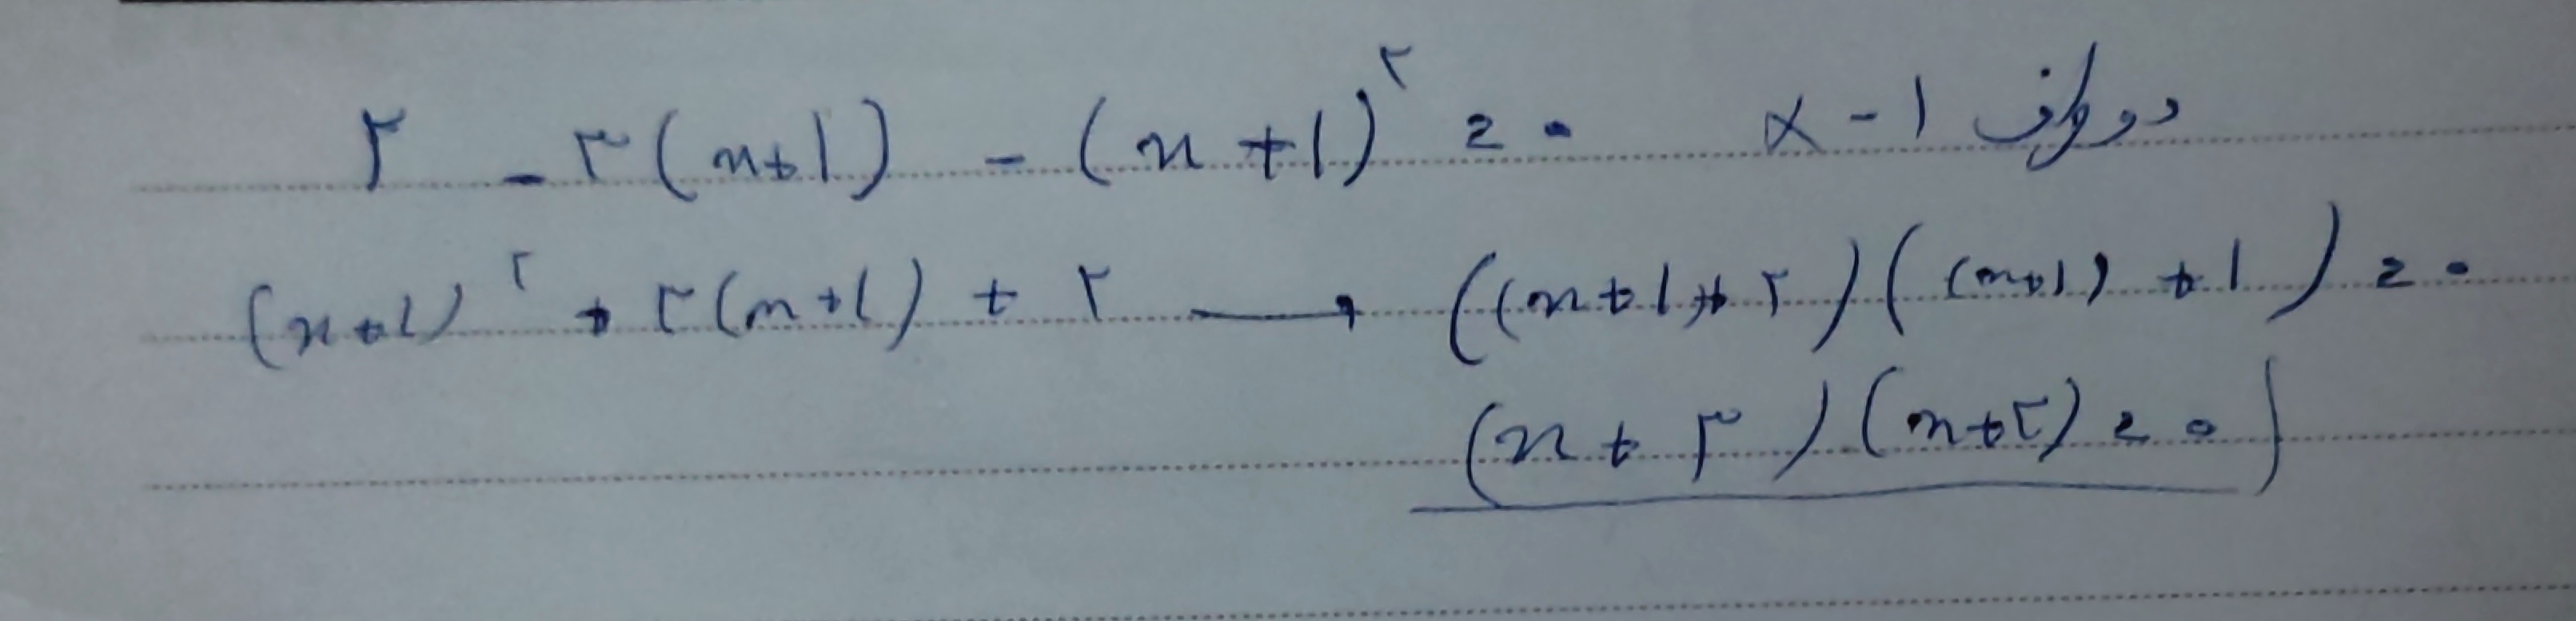 ۲ - ۳(x+1) - (x+1)^۲ = ۰   × -1 دو طرف
(x+1)^۲ + ۳(x+1) + ۲ → ((x+1)+۲)((x+1)+1) = ۰
(x+۳)(x+۲) = ۰)